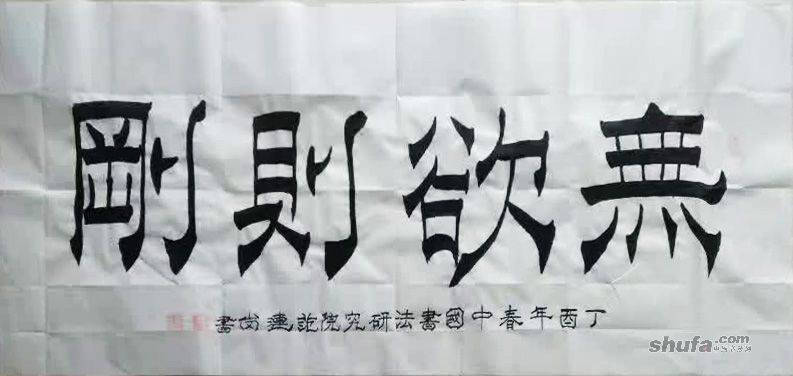 無欲則剛
丁酉年春中國書法研究院 建 書
shufa.com